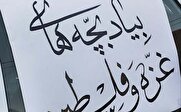 بیاد بچه های
غزه و فلسطین